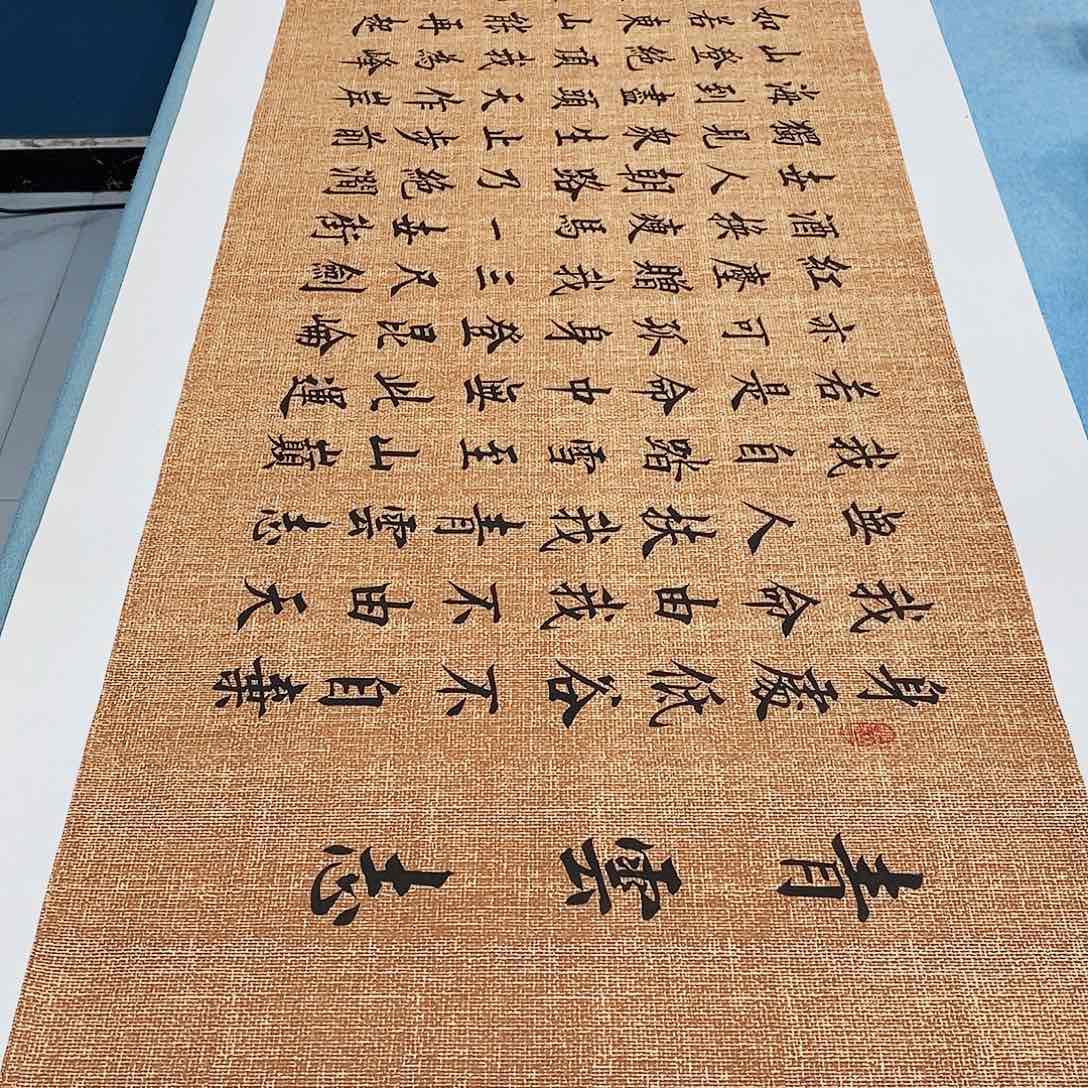 青雲志
身處低谷不自棄
我命由我不由天
無人扶我青雲志
我自踏雪至山巔
若是命中無此運
亦可孤身登昆崘
紅塵贈我三尺劍
酒換瘦馬一世銜
世人朝路乃絕澗
獨見衆生止步前
海到盡頭天作岸
山登絕頂我爲峰
如若東山能再起